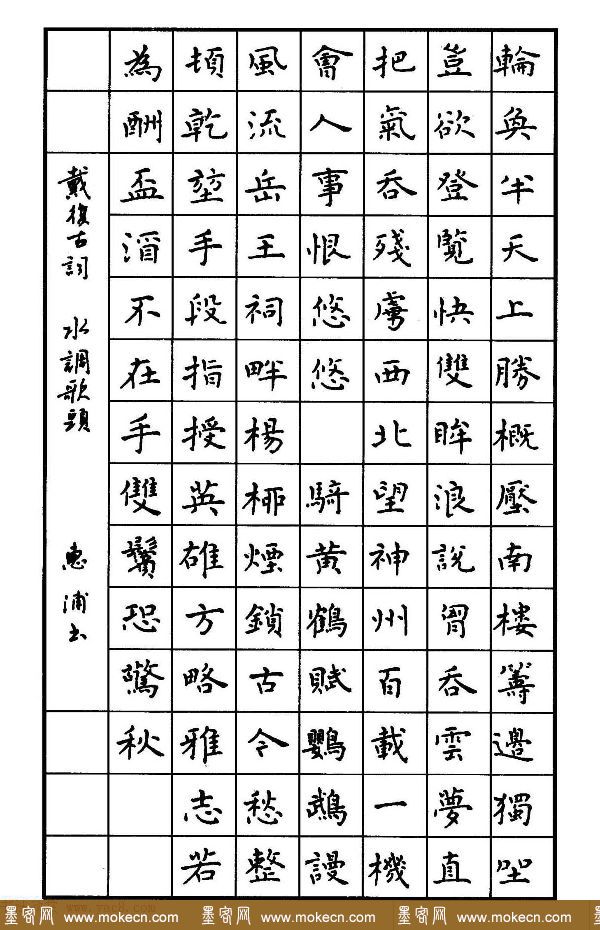 輪奐半天上勝概壓南楼籌邊獨坐
豈欲登覽快雙眸浪說胷吞雲夢直
把氣吞殘虜西北望神州百載一機
會人事恨悠悠 騎黃鶴賦鸚鵡謾
風流岳王祠畔楊柳煙鎖古今愁整
頓乾堃手段指授英雄方略雅志若
為酬盃酒不在手雙鬢恐驚秋
戴復古詞 水調歌頭 惠浦书
www.yac8.com
墨客网 www.mokecn.com 墨客网 www.mokecn.com 墨客网 www.mokecn.com